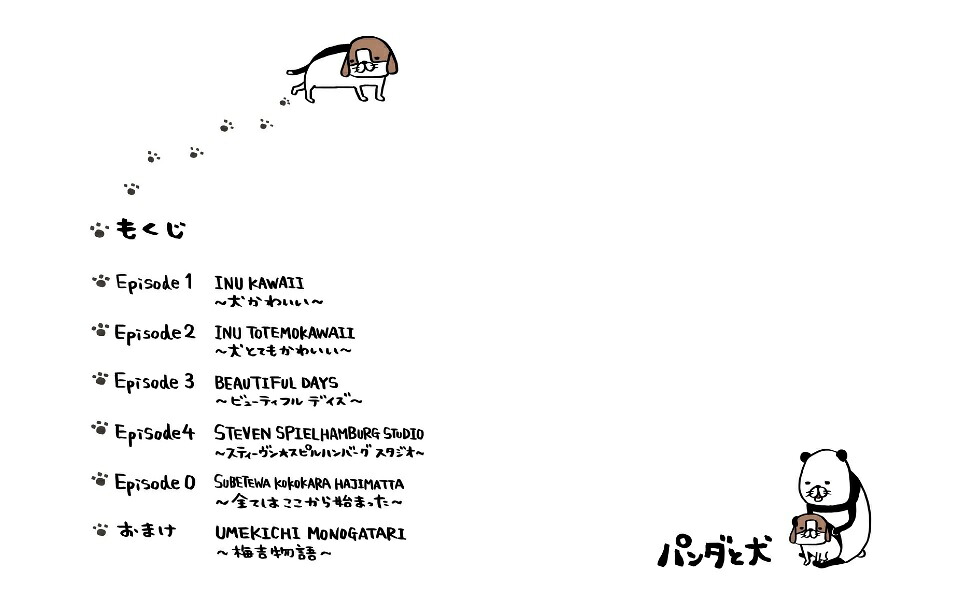 もくじ
Episode 1 INU KAWAII
～犬かわいい～
Episode 2 INU TOTEMOKAWAII
～犬とてもかわいい～
Episode 3 BEAUTIFUL DAYS
～ビューティフル デイズ～
Episode 4 STEVEN SPIELHAMBURG STUDIO
～スティーヴン★スピルハンバーグ スタジオ～
Episode 0 SUBETEWA KOKOKARA HAJIMATTA
～全てはここから始まった～
おまけ UMEKICHI MONOGATARI
～梅吉物語～
パンダと犬